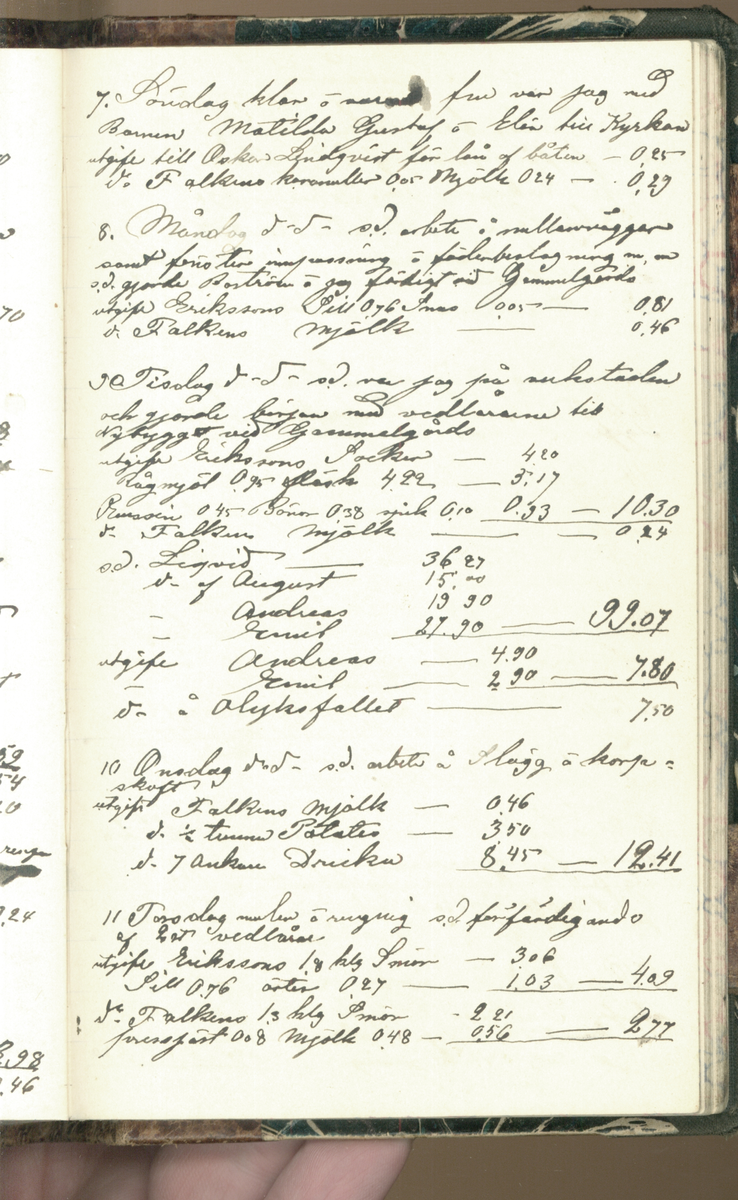 7. Söndag klar ö varmt fm var jag med
Barnen Matilda Gustaf ö Elin till Kyrkan
utgift till Oskar Lindqvist för lån af båten — 0,25
do Falkens karameller 0.05 Mjölk 0.24 — 0,29
8. Måndag d-d- s.d. arbete å mellanväggar
samt fönster inpassning ö föderbeslagning m, m
s.d. gjorde Boström ö jag färdigt vid Gammelgårds
utgift Erikssons Sill 0,76 0.05 — 0,81
d. Falkens Mjölk — 0,46
9 Tisdag d-d- s.d. var jag på verkstaden
och gjorde början med vedlårarne till
Nybygget vid Gammelgårds
utgift Erikssons Socker — 4.20
Rågmjöl 0.95 fläsk 4.22 — 5.17
0.45 Bönor 0.38 spik 0.10 0.93 — 10.30
d- Falkens Mjölk — 0.24
s.d. Liqvid — 36.27
d- af August 15.00
— Andreas 19.90
— Emil 27.90 — 99.07
utgift Andreas — 4.90
— Emil — 2.90 — 7.80
d- å Olyksfallet — 7.50
10 Onsdag d-d- s.d. arbete å Slägg ö korp=
skaft
utgift Falkens Mjölk — 0.46
d- ½ tunna Potates — 3.50
d- 7 Ankare Dricka 8.45 — 12.41
11 Torsdag mulen ö regnig s.d. förfärdigande
af 2st vedlårar
utgift Erikssons 1.8 klg Smör — 3.06
Sill 0.76 ärter 0.27 — 1.03 — 4.09
do Falkens 1.3 klg Smör - 2.21
pressjäst 0.08 Mjölk 0.48 — 0.56 — 2.77